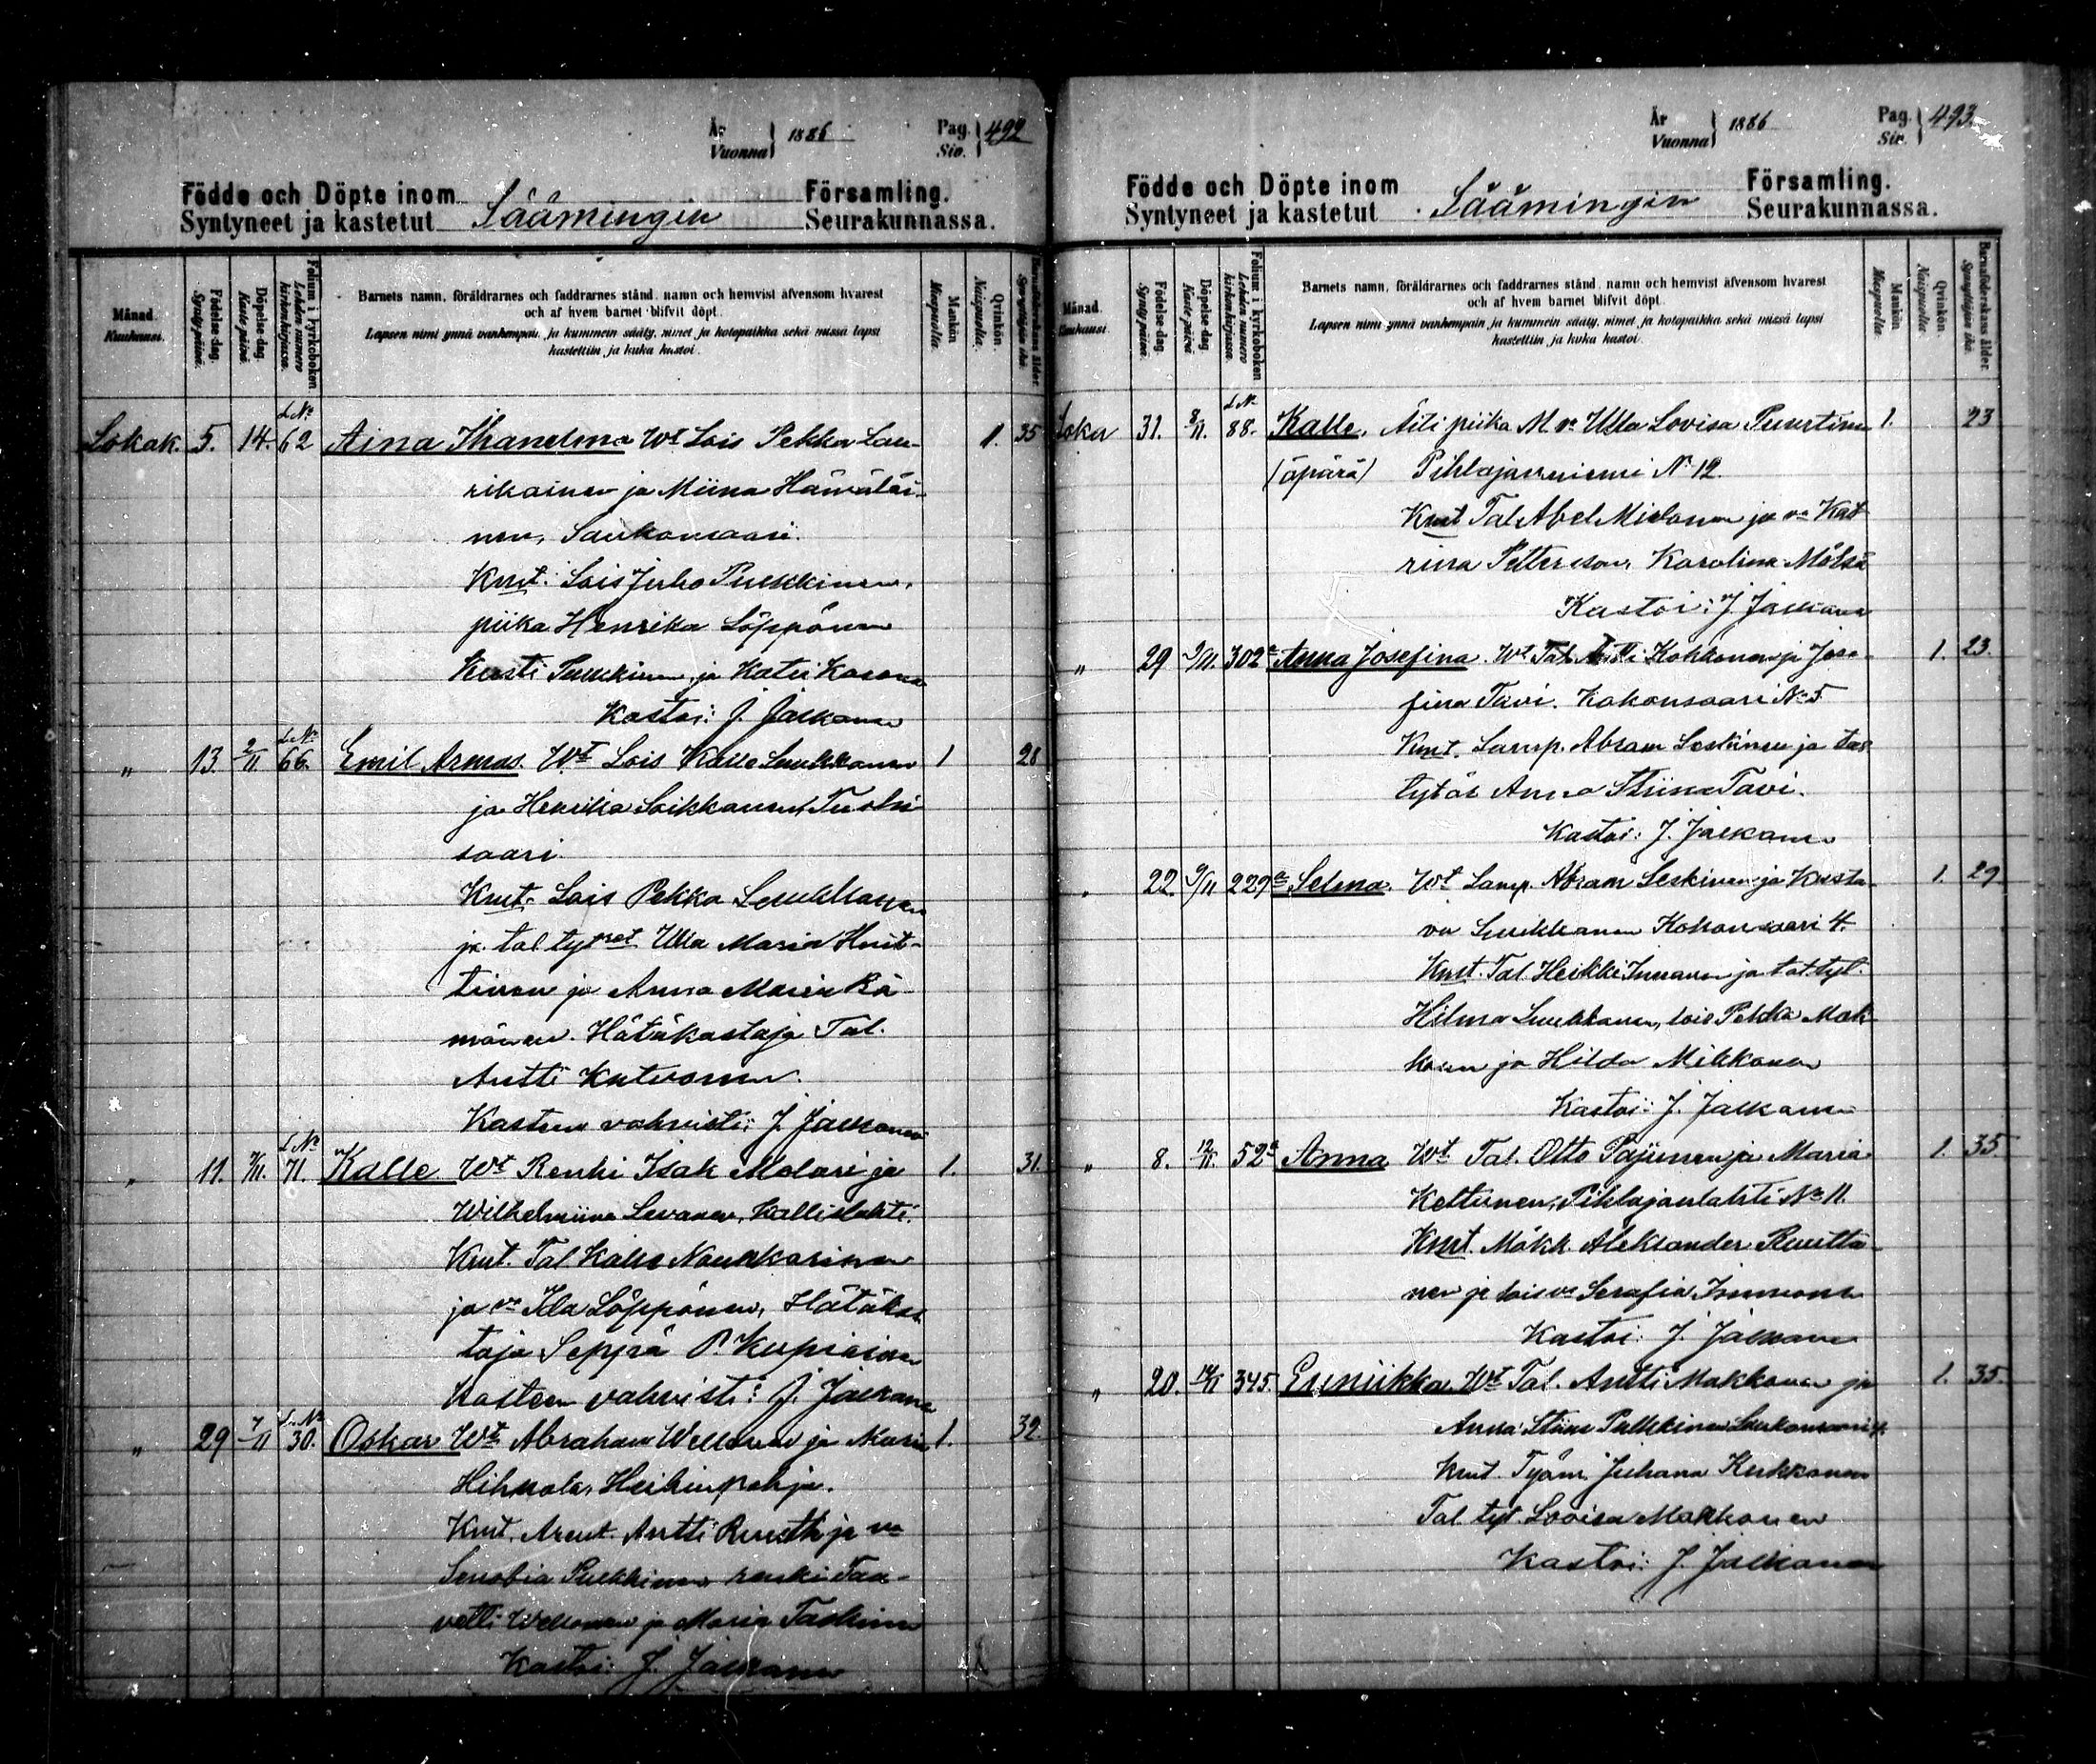 År
Vuonna } 1886
Pag.
Siv. } 492
Födde och Döpte inom Församling.
Syntyneet ja kastetut Säämingin Seurakunnassa.
Månad. Kuukausi.
Födelse-dag. Synty-päivä.
Döpelse-dag. Kaste-päivä.
Folium i kyrkoboken Lehden numero kirkonkirjassa.
Barnets namn, föräldrarnes och faddrarnes stånd, namn och hemvist äfvensom hvarest
och af hvem barnet blifvit döpt.
Lapsen nimi ynnä vanhempain ja kummein sääty, nimet ja kotopaikka sekä missä lapsi
kastettiin ja kuka kastoi.
Mankön Miespuolia.
Qvinkön. Naispuolia.
Barnaföderskans ålder. Synnyttäjän ikä.
L. No
Lokak. 5. 14. 62 Aina Ihanelma Wt Lois Pekka Lau- 1. 35
rikainen ja Miina Hämäläi-
nen, Saukonsaari.
Kmt. Lois Juho Pulkkinen,
piika Henrika Löppönen
Kusti Pulkkinen ja Katri Kosonen
Kastoi: J. Jalkanen
L. No
" 13. 2/11. 66. Emil Armas. Wt Lois Kalle Luukkonen 1 28
ja Henrika Loikkanen, Tuohi
saari.
Kmt. Lois Pekka Luukkonen
ja tal. tyret Ulla Maria Huut-
tinen ja Anna Maria Rä-
mänen. Hätäkastaja Tal.
Antti Kutvonen.
Kasteen vahvisti: J. Jalkanen
L. No
" 11. 7/11. 71. Kalle Wt Renki Isak Molari ja 1. 31.
Wilhelmiina Levanen, Kallislahti.
Kmt. Tal Kalle Nouskarinen
ja va Ida Löppönen, Hätäkas
taja Seppä P. Kupiainen
Kasteen vahvisti: J. Jalkanen
L. No
" 29 7/11 30. Oskar Wt Abraham Wellonen ja Maria 1. 32.
Heikinpohja.
Kmt. Arent. Antti Ruuth ja va
Senobia Pulkkinen renki Taa-
vetti Wellonen ja Maria Taskinen
Kastoi: J. Jalkanen
År
Vuonna } 1886
Pag.
Sir. } 493.
Födde och Döpte inom Församling.
Syntyneet ja kastetut Säämingin Seurakunnassa.
Månad. Kuukausi.
Födelse-dag. Synty-päivä.
Döpelse-dag. Kaste-päivä.
Folium i kyrkoboken Lehden numero kirkonkirjassa.
Barnets namn, föräldrarnes och faddrarnes stånd, namn och hemvist äfvensom hvarest
och af hvem barnet blifvit döpt.
Lapsen nimi ynnä vanhempain ja kummein sääty, nimet ja kotopaikka sekä missä lapsi
kastettiin ja kuka kastoi.
Mankön Miespuolia.
Qvinkön. Naispuolia.
Barnaföderskans ålder. Synnyttäjän ikä.
L. N
Loka 31. 8/11. 88. Kalle. Äiti piika Ulla Lovisa Puustinen 1. 23
(äpärä) Pihlajanniemi No 12.
Kmt Tal Abel Mielonen ja va Kat
rina Petterson, Karolina Mölsä
Kastoi: J. Jalkanen
" 29 9/11. 302a Anna Josefina. Wt Tal. Antti Kokkonen ja Jose- 1. 23.
fina Tavi. Kokonsaari No 5
Kmt. Lamp. Abram Leskinen ja tal
tytär Anna Stiina Tavi.
Kastoi: J. Jalkanen
" 22 9/11 229a Selma. Wt Lamp. Abram Leskinen ja Kusta- 1. 29
va Luukkanen Kokonsaari 4.
Kmt. Tal. Heikki Immonen ja tal. tyt.
Hilma Luukkanen, lois Pekka Mak
konen ja Hilda Mikkonen
Kastoi: J. Jalkanen
" 8. 12/11. 52a Anna Wt Tal. Otto Pajunen ja Maria 1. 35
Kettunen, Pihlajanlahti No 11.
Kmt. Mökk. Aleksander Ruotta-
nen ja lois va Serafia Immonen
Kastoi: J. Jalkanen
" 20. 14/11 345. Eeniikka Wt Tal. Antti Makkonen ja 1. 35.
Anna Stiina Pulkkinen Saukonsaari
Kmt. Työm. Juhana Kukkonen
Tal. tyt. Loviisa Makkonen
Kastoi: J. Jalkanen